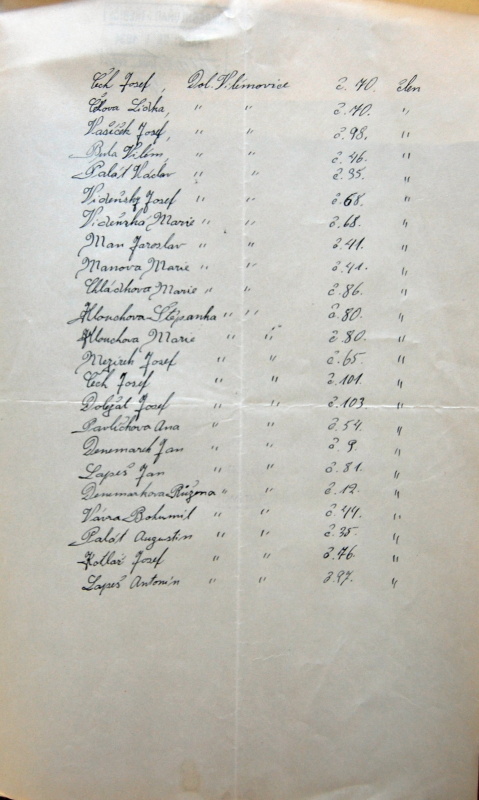 Čech Josef, Dol. Vilimovice č. 70. člen
Čechova Lidka, " " č. 70. "
Vašíček Josef, " " č. 98. "
Bula Vilém, " " č. 46. "
Palát Václav " " č. 35. "
Videňský Josef " " č. 68. "
Videňská Marie " " č. 68. "
Man Jaroslav " " č. 41. "
Manova Marie " " č. 41. "
Chládkova Marie " " č. 86. "
Klouchova Štěpanka " " č. 80. "
Klouchova Marie " " č. 80. "
Mezírek Josef " " č. 65. "
Čech Josef " " č. 101. "
Doležal Josef " " č. 103. "
Pavlíčkova Ana " " č. 54. "
Denemarek Jan " " č. 9. "
Lapeš Jan " " č. 81. "
Denemarkova Růžena " " č. 12. "
Vávra Bohumil " " č. 44. "
Palát Augustin " " č. 35. "
Kotlař Josef " " č. 76. "
Lapeš Antonín " " č. 97. "